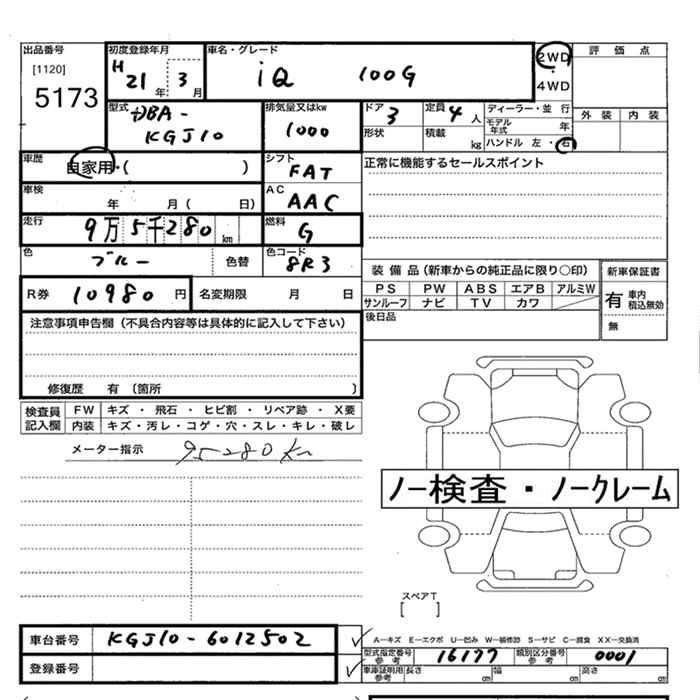 出品番号 初度登録年月 車名・グレード 2WD 評価点
[1120] H21年 3月 iQ 100G 4WD
5173
型式 DBA-KGJ10 排気量又はkw 1000 ドア 3 定員 4人 ディーラー・並行 外装 内装
モデル年式 年
形状 積載 kg ハンドル 左・右
車歴 自家用・( ) シフト FAT 正常に機能するセールスポイント
車検 年 月( 日) AC AAC
走行 9万5千280km 燃料 G
色 ブルー 色替 色コード 8R3 装備品(新車からの純正品に限り○印) 新車保証書
R券 10980円 名変期限 月 日 PS PW ABS エアB アルミW 有 車内 積込無効
サンルーフ ナビ TV カワ
注意事項申告欄(不具合内容等は具体的に記入して下さい) 後日品 無
修復歴 有 (箇所 )
検査員記入欄 FW キズ・飛石・ヒビ割・リペア跡・X要
内装 キズ・汚レ・コゲ・穴・スレ・キレ・破レ
メーター指示 95280km
ノー検査・ノークレーム
スペアT
[ ]
車台番号 KGJ10-6012502 A—キズ E—エクボ U—凹み W—補修跡 S—サビ C—腐食 XX—交換済
型式指定番号 参考 16177 類別区分番号 参考 0001
登録番号 車庫証明用 参考 長さ cm 幅 cm 高さ cm